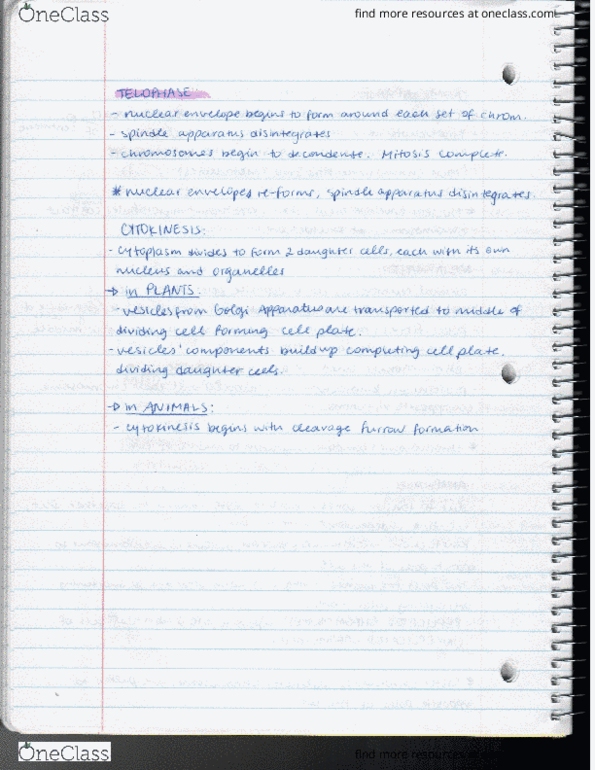 OneClass
find more resources at oneclass.com
TELOPHASE
- nuclear envelope begins to form around each set of chrom.
- spindle apparatus disintegrates
- chromosomes begin to decondense. Mitosis complete.
* nuclear envelopes re-forms, spindle apparatus disintegrates.
CYTOKINESIS:
- cytoplasm divides to form 2 daughter cells, each with its own
nucleus and organelles
→ in PLANTS:
- vesicles from Golgi Apparatus are transported to middle of
dividing cell forming cell plate.
- vesicles' components build up completing cell plate,
dividing daughter cells.
→ in ANIMALS:
- cytokinesis begins with cleavage furrow formation
OneClass
find more resources at oneclass.com